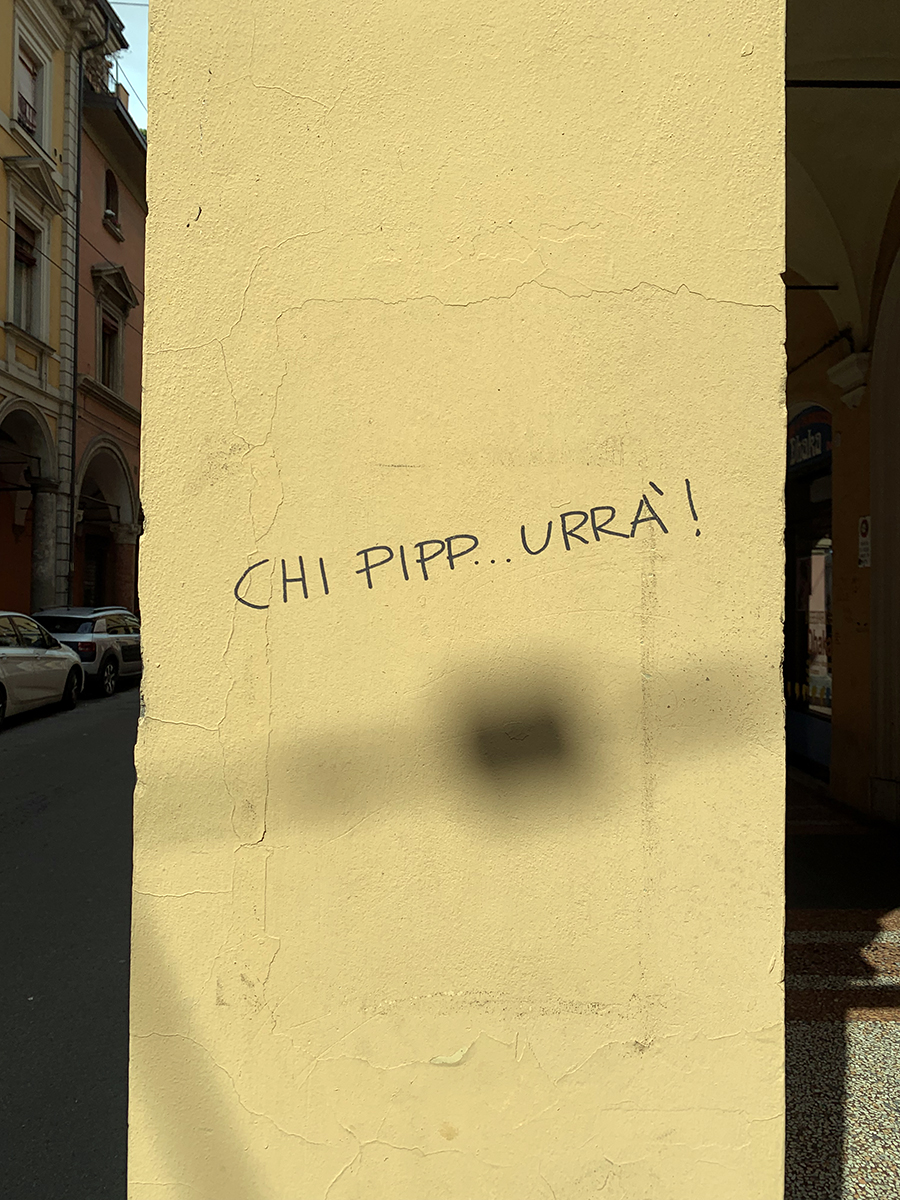 CHI PIPP...URRÀ!